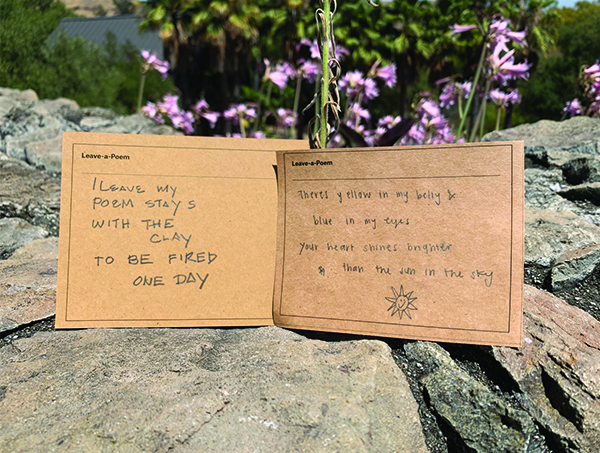 Leave-a-Poem
I LEAVE MY
POEM STAYS
WITH THE
CLAY
TO BE FIRED
ONE DAY
Leave-a-Poem
Theres yellow in my belly &
blue in my eyes
Your heart shines brighter
than the sun in the sky